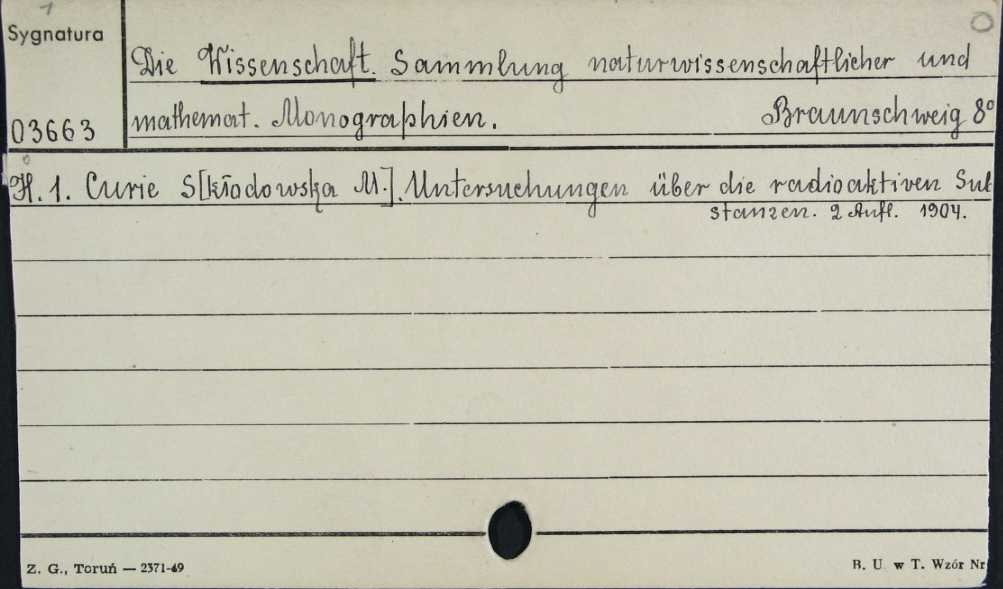 1
Sygnatura
Die Wissenschaft. Sammlung naturwissenschaftlicher und
03663 mathemat. Monographien. Braunschweig 8°
H. 1. Curie S[kłodowska M.]. Untersuchungen über die radioaktiven Sub
stanzen. 2 Aufl. 1904.
Z. G., Toruń — 2371-49 B. U. w T. Wzór Nr